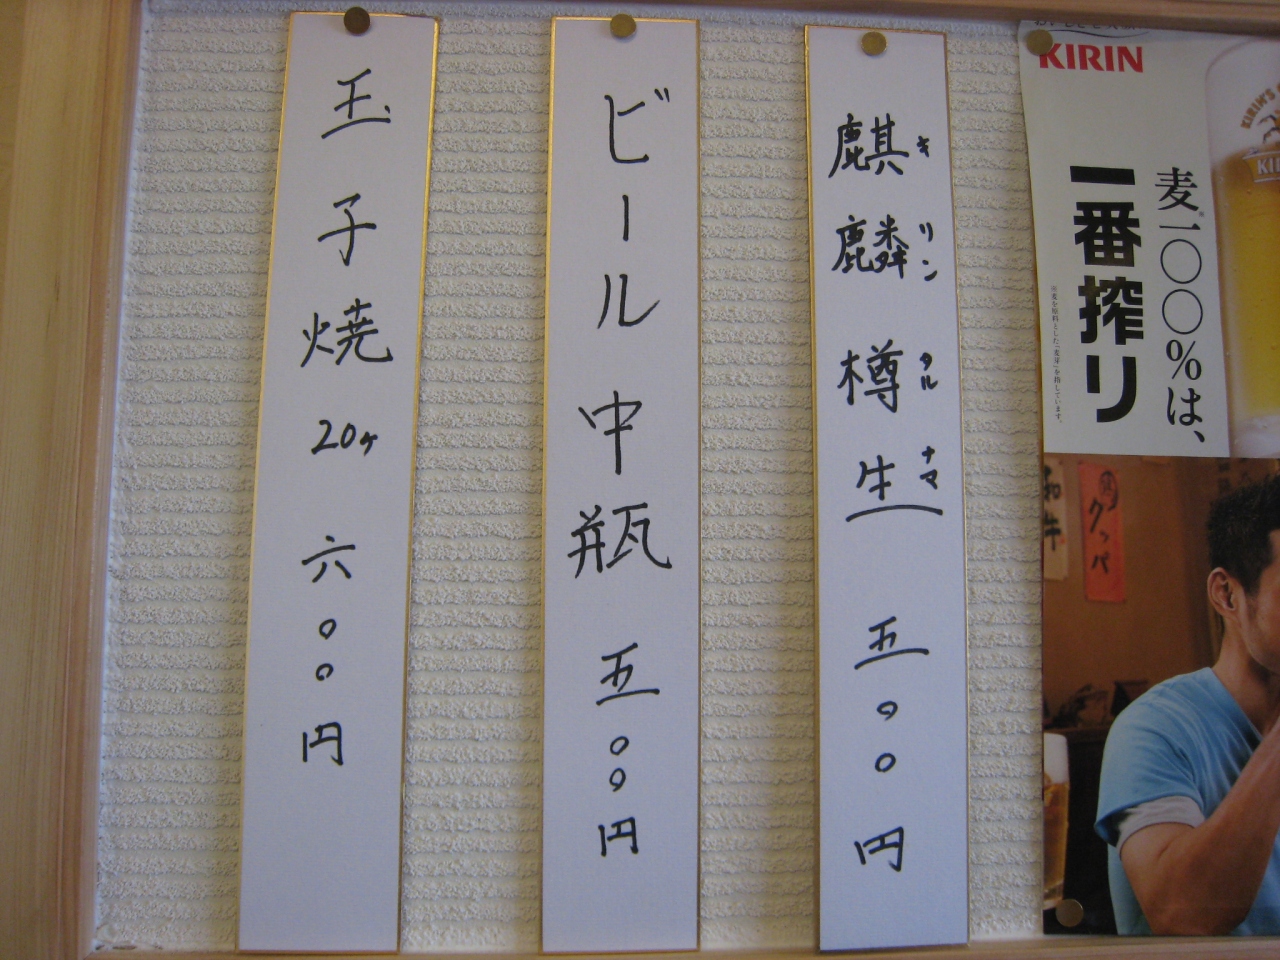 KIRIN
麦一〇〇%は、
一番搾り
クッパ
麒麟樽生 五〇〇円
キリンタルナマ
ビール中瓶 五〇〇円
玉子焼 20ヶ 六〇〇円